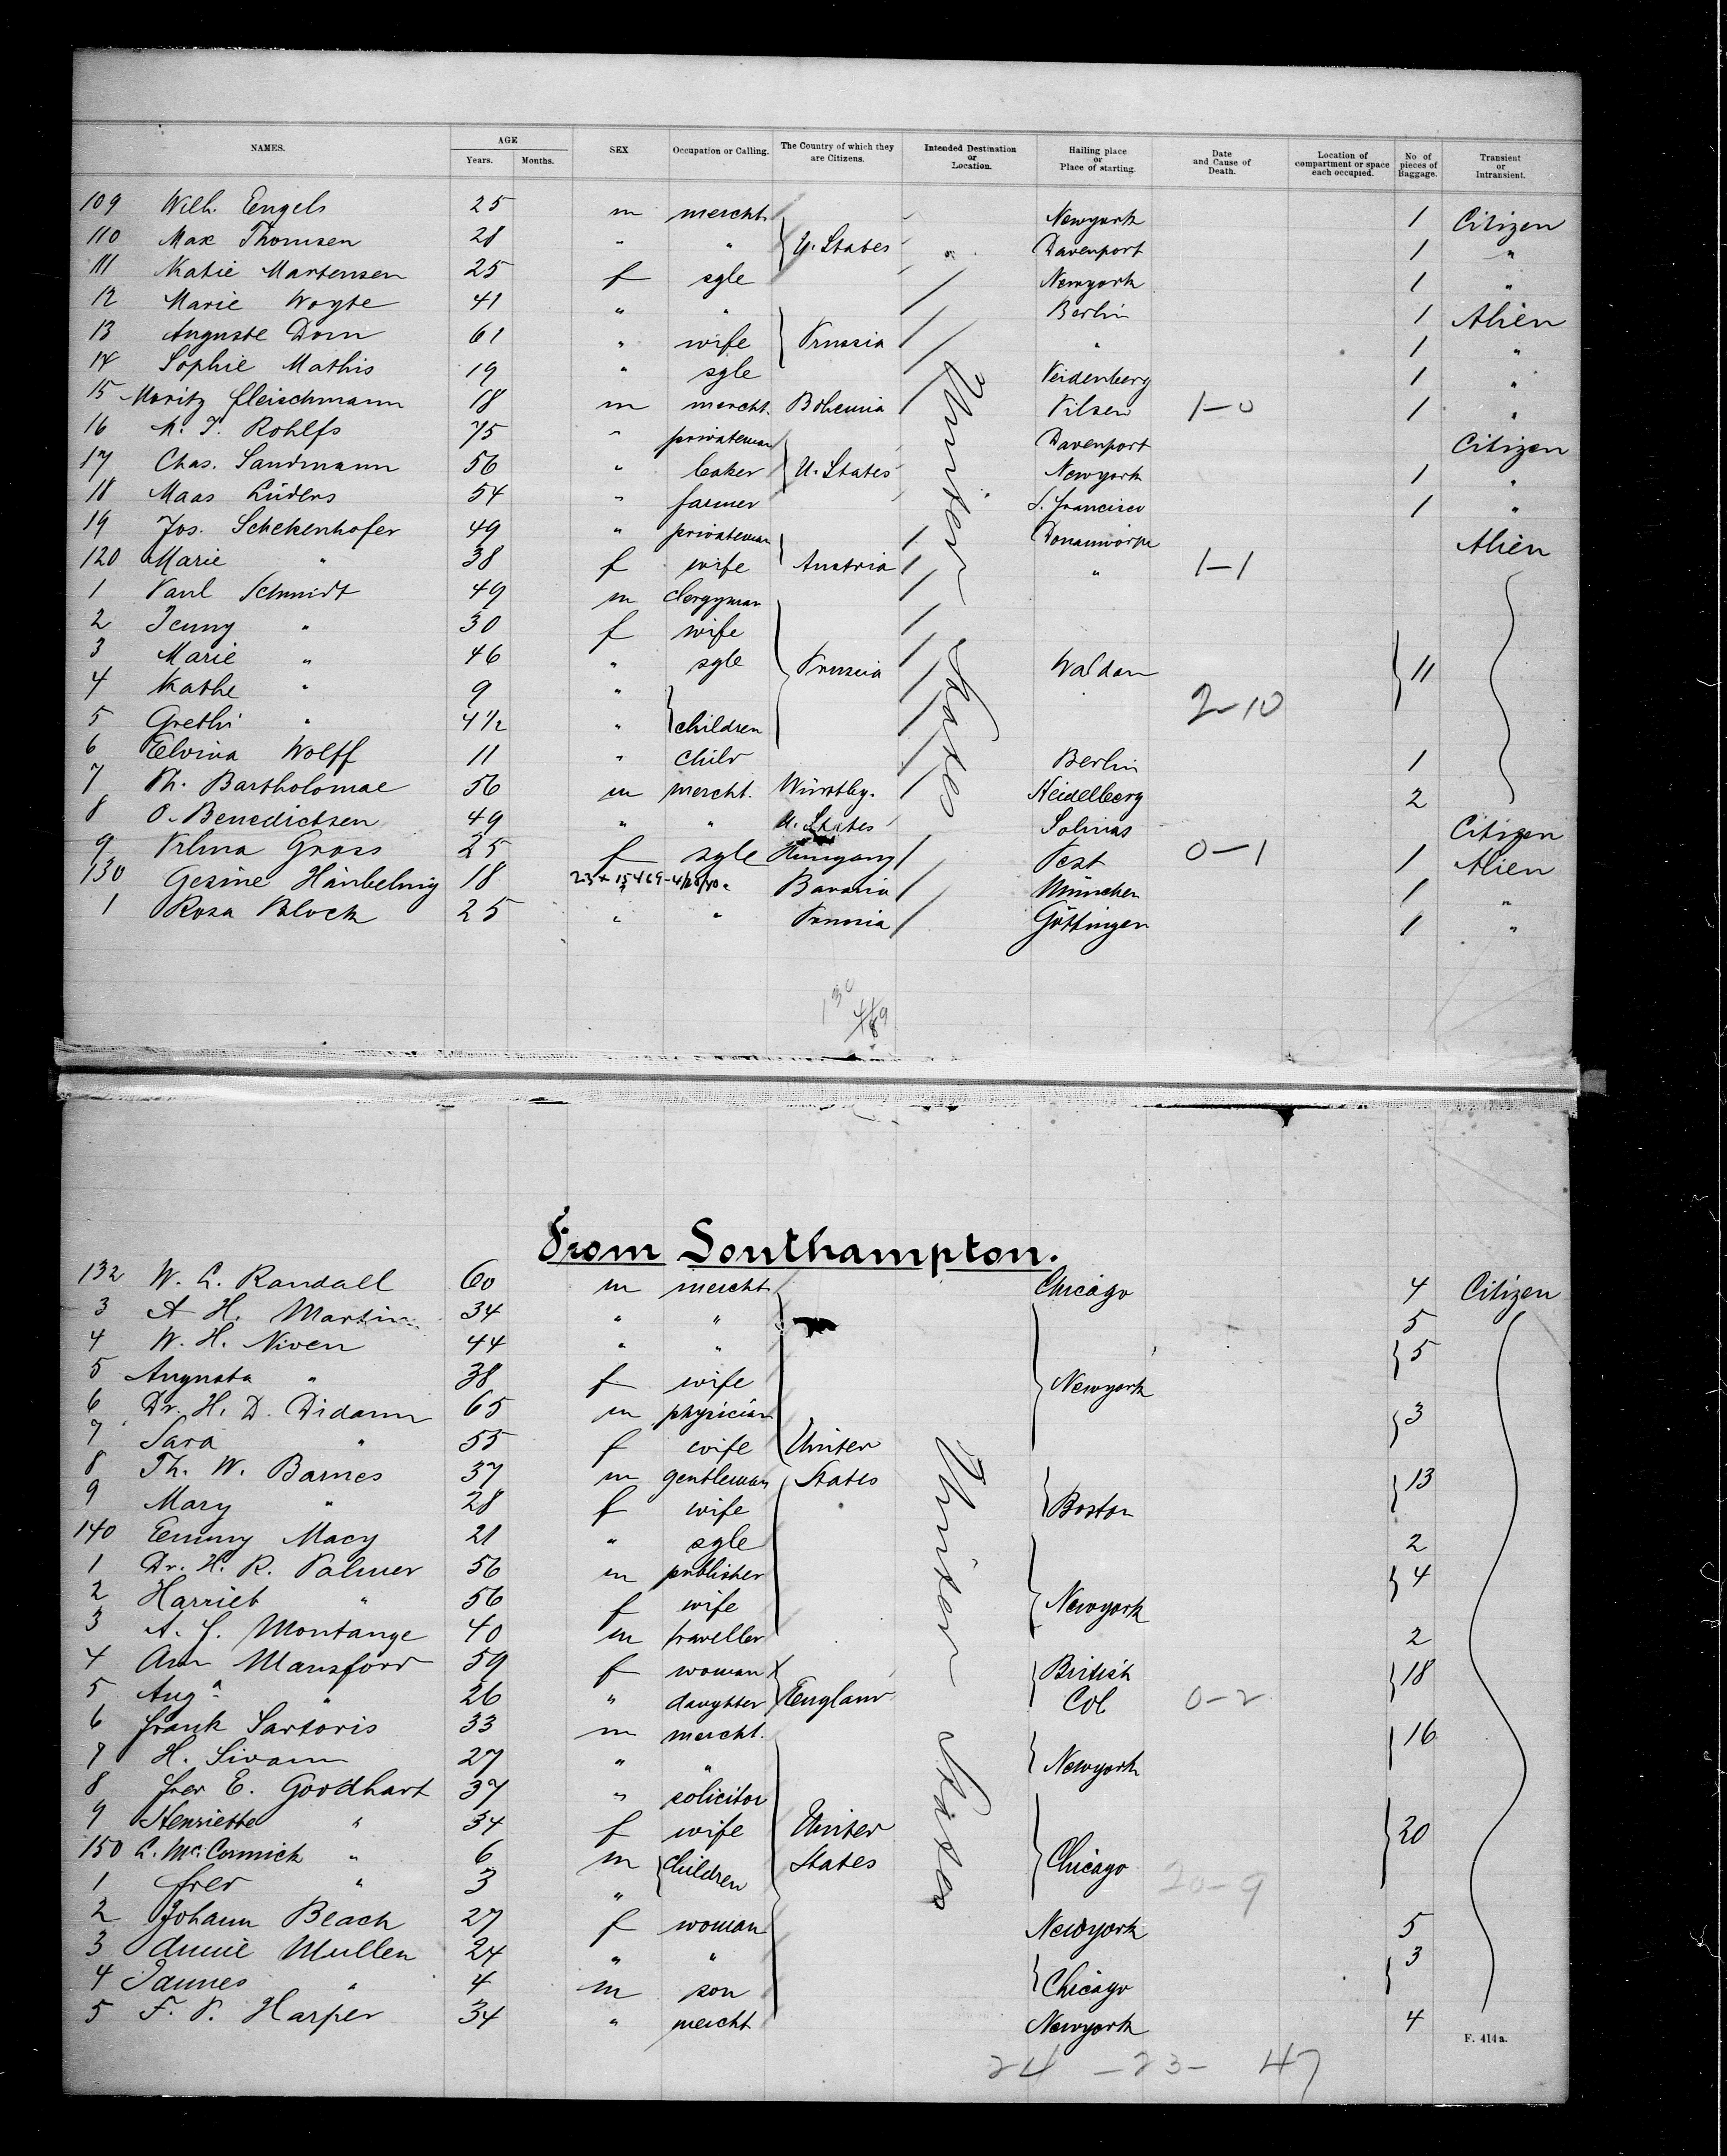 NAMES. AGE Years. Months. SEX Occupation or Calling. The Country of which they are Citizens. Intended Destination or Location. Hailing place or Place of starting. Date and Cause of Death. Location of compartment or space each occupied. No of pieces of Baggage. Transient or Intransient.
109 Wilh. Engels 25 m mercht. Newyork 1 Citizen
110 Max Thomsen 28 " " U. States " Davenport 1 "
111 Katie Martensen 25 f sgle Newyork 1 "
12 Marie Woyte 41 " " Berlin 1 Alien
13 Auguste Dorn 61 " wife Prussia " 1 "
14 Sophie Mathis 19 " sgle Seidenberg 1 "
15 Moritz Fleischmann 18 m mercht. Bohemia Pilsen 1-0 1 "
16 M. J. Rohlfs 75 " privateman Davenport Citizen
17 Chas. Sandmann 56 " baker U. States Newyork 1 "
18 Maas Lüders 54 " farmer S. Francisco 1 "
19 Jos. Schekenhofer 49 " privateman Donauwörth Alien
120 Marie " 38 f wife Austria " 1-1
1 Paul Schmidt 49 m clergyman
2 Jenny " 30 f wife
3 Marie " 46 " sgle Prussia Waldau 11
4 Kathe " 9 "
5 Grethi " 4 1/2 " children 2-10
6 Elvina Wolff 11 " child Berlin 1
7 Ph. Bartholomae 56 m mercht. Württbg. Heidelberg 2
8 O. Benedictsen 49 " " U. States Salinas Citizen
9 Vilma Gross 25 f sgle Hungary Pest 0-1 1 Alien
130 Gesine 18 23 x 15469-4/28/40 " Bavaria München 1 "
1 Rosa Block 25 " " Prussia Göttingen 1 "
United States
130
From Southampton.
132 W. C. Randall 60 m mercht. Chicago 4 Citizen
3 A. H. Martin 34 " " 5
4 W. H. Niven 44 " " 5
5 Augusta " 38 f wife Newyork
6 Dr. H. D. Didama 65 m physician 3
7 Sara " 55 f wife United
8 Th. W. Barnes 37 m gentleman States 13
9 Mary " 28 f wife Boston
140 Emmy Macy 21 " sgle 2
1 Dr. H. R. Palmer 56 m publisher 4
2 Harriet " 56 f wife Newyork
3 A. J. Montange 40 m traveller 2
4 Ann Mansford 59 f woman X British 18
5 Auga " 26 " daughter England Col 0-2
6 Frank Sartoris 33 m mercht. 16
7 H. Sivann 27 " " Newyork
8 Fred E. Goodhart 37 " solicitor
9 Henriette " 34 f wife United 20
150 C. McCormick " 6 m children States Chicago
1 Fred " 3 " 20-9
2 Johann Beach 27 f woman Newyork 5
3 Annie Mullen 24 " " 3
4 James " 4 m son Chicago
5 F. P. Harper 34 " mercht Newyork 4
United States
F. 414a.
24 - 23 - 47